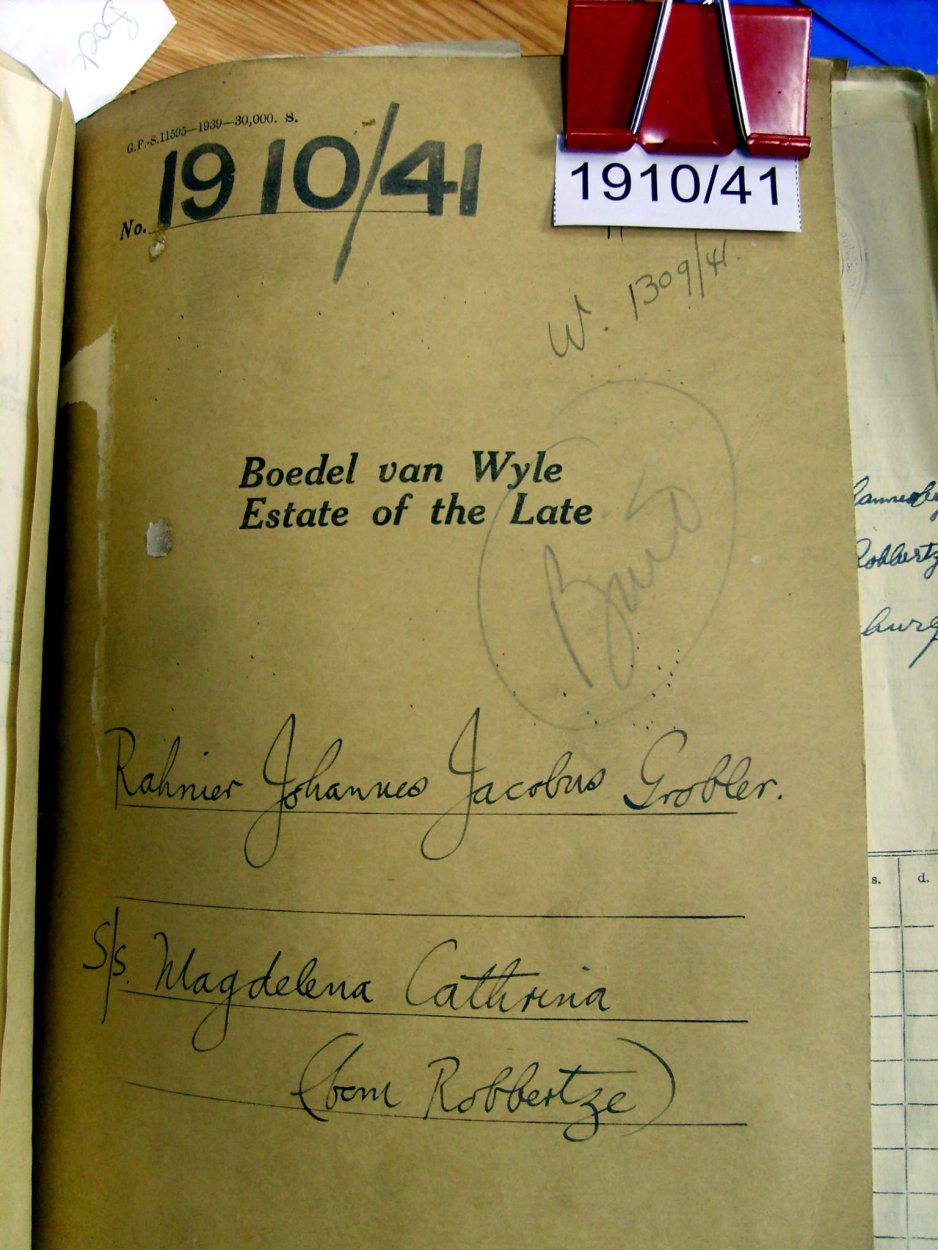 Boek
G.P.-S.11595—1939—30,000. S.
No. 1910/41
1910/41
W. 1309/41.
Boedel van Wyle
Estate of the Late
Rahnier Johannes Jacobus Grobler.
S/s. Magdelena Cathrina
(born Robbertze)
s. d.